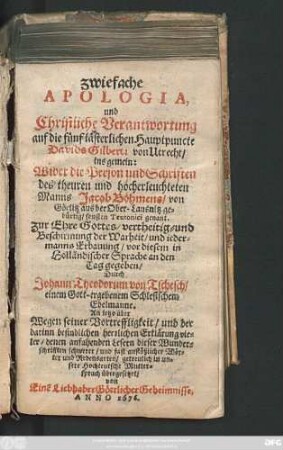 Zwiefache
APOLOGIA,
und
Christliche Verantwortung
auf die fünf lästerlichen Hauptpuncte
Davids Gilberti von Utrecht/
ins gemein:
Wider die Person und Schriften
des theuren und hocherleuchteten
Manns Jacob Böhmens/ von
Görlitz aus der Ober-Lausnitz ge-
bürtig/ sonsten Teutonici genant.
Zur Ehre Gottes/ vertheitig/und
Beschirmung der Warheit/ und ieder-
manns Erbauung/ vor diesem in
Holländischer Sprache an den
Tag gegeben/
Durch
Johann Theodorum von Tschesch/
einem Gott-ergebenem Schlesischem
Edelmanne.
An ietzo aber
Wegen seiner Vortrefflichkeit/ und der
darinn befindlichen herrlichen Erklärung vie-
ler/ denen anfahenden Lesern dieser Wunder-
schrifften schwerer/ und fast anstößlicher Wör-
ter und Redensarten/ getreulich in un-
sere Hochteutsche Mutter-
sprach übergesetzet/
von
Eine Liebhaber Göttlicher Geheimnisse,
ANNO 1676.